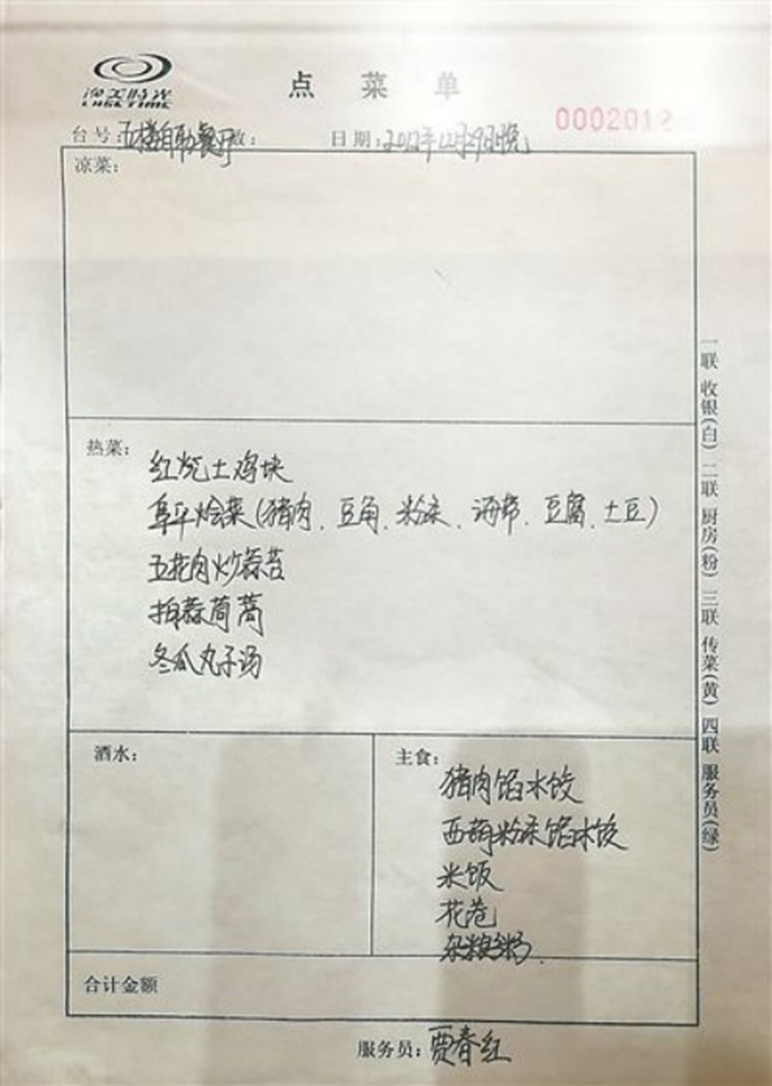 点菜单
LAKE TIME
0002012
台号:五楼自助餐厅 数: 日期:2012年12月29日晚
凉菜:
热菜:
红烧土鸡块
阜平烩菜(猪肉、豆角、粉条、海带、豆腐、土豆)
五花肉炒蒜苔
拍蒜茼蒿
冬瓜丸子汤
酒水:
主食:
猪肉馅水饺
西葫粉条馅水饺
米饭
花卷
杂粮粥.
合计金额
服务员:贾春红
一联 收银(白) 二联 厨房(粉) 三联 传菜(黄) 四联 服务员(绿)